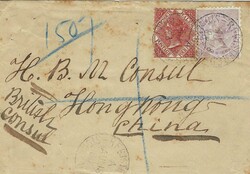 150
H. B. M Consul
British
Consul
Hong Kong
China